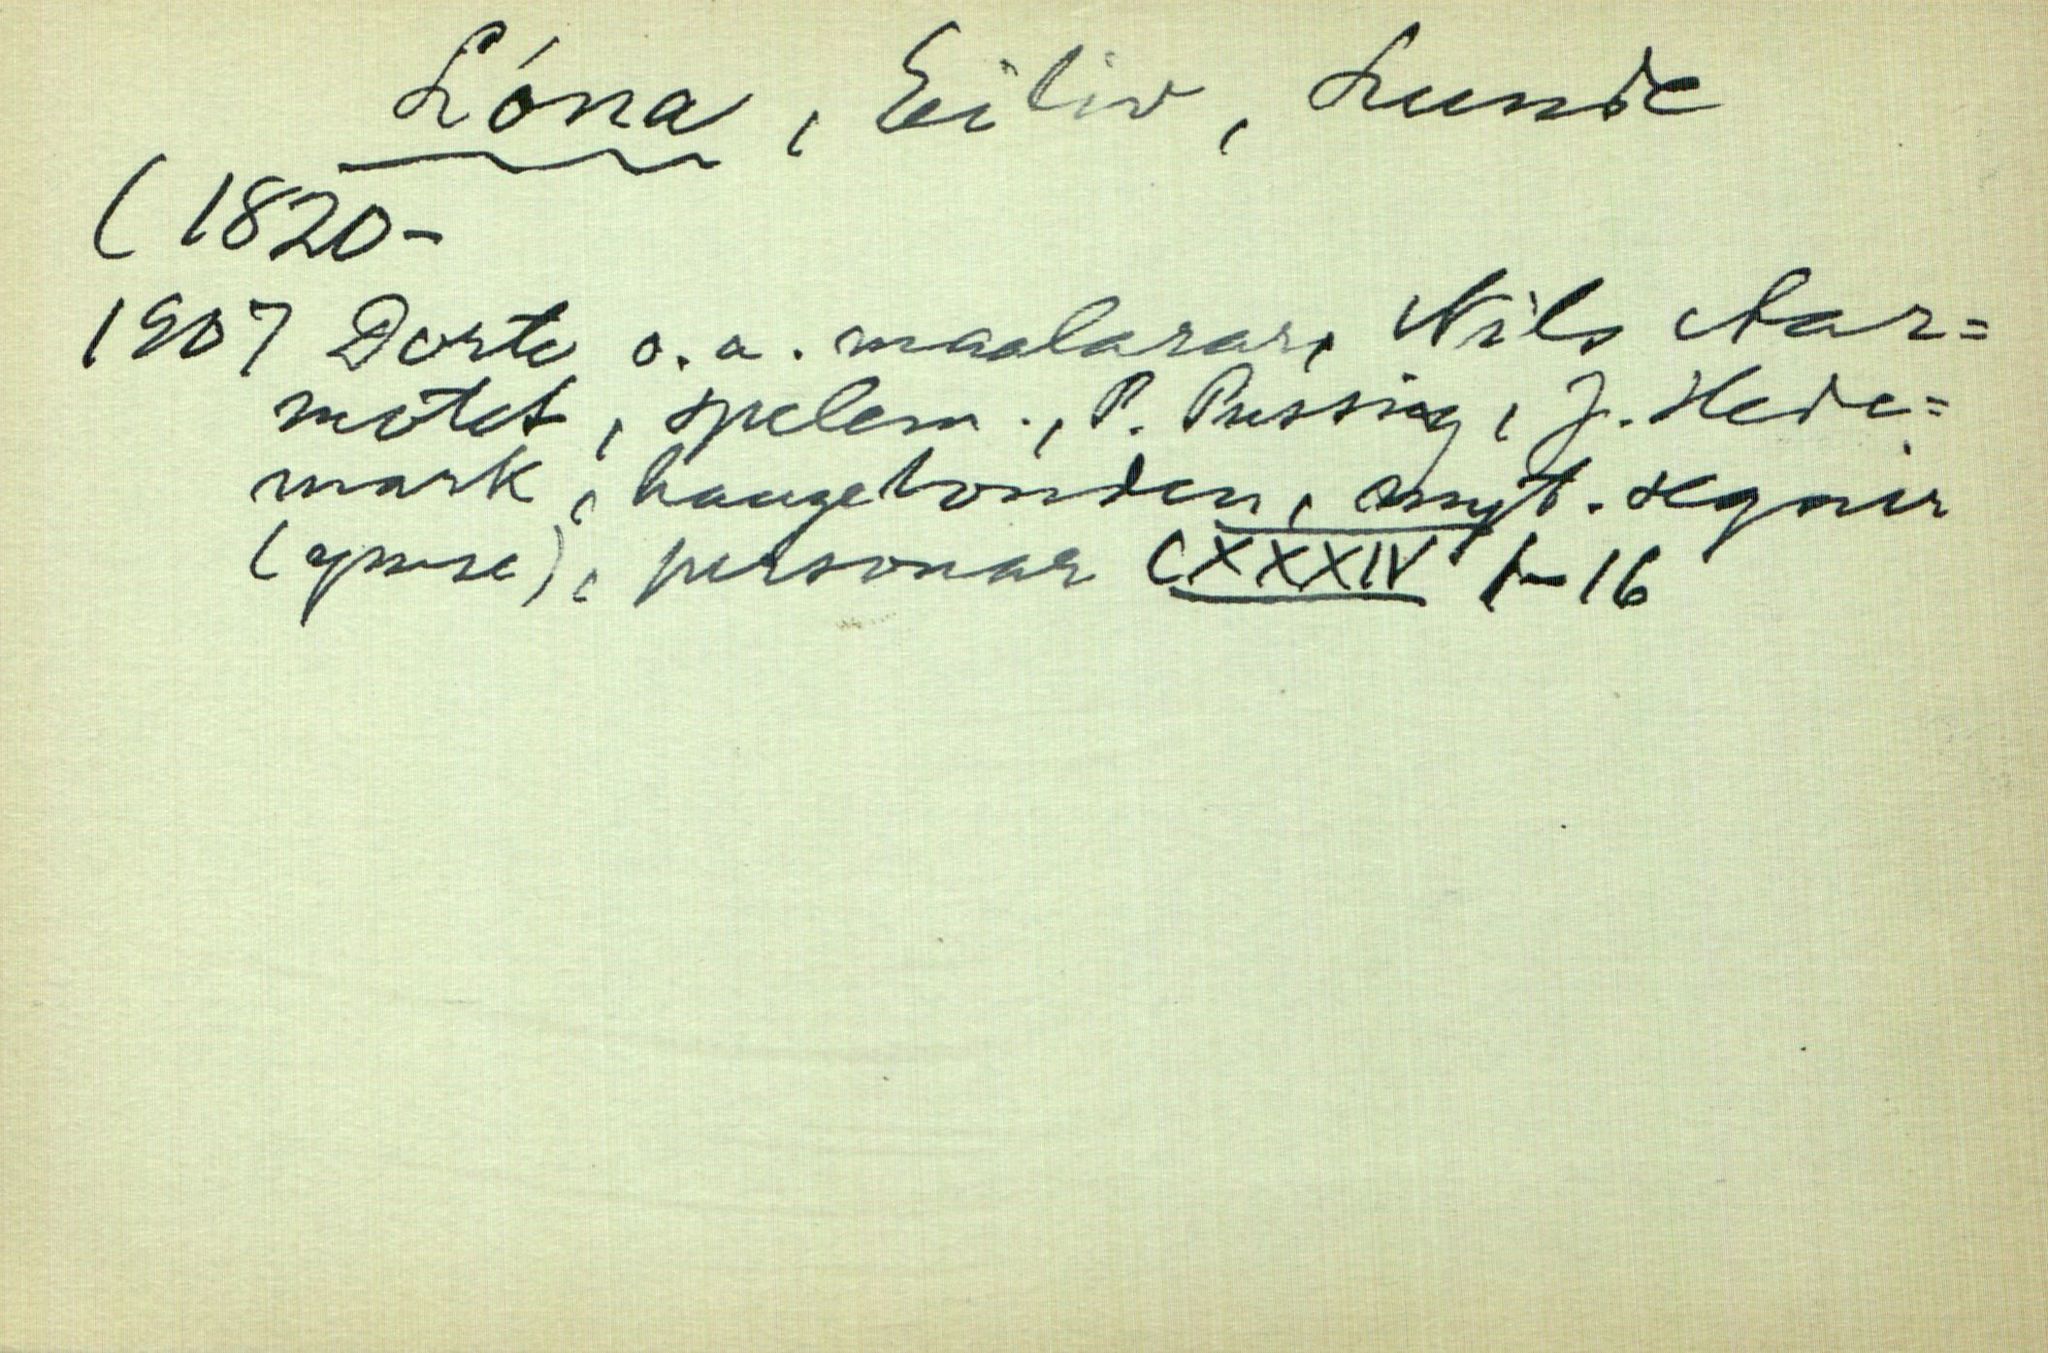 Lóna, Eiliv, Lunde
(1820-
1907 Dorte o.a. maalarar, Nils Aar=
motet, spelem., P. Pussing, J. Hede=
mark, haugebonden, myt. segnir
(ymse), personar CXXXIV 1-16